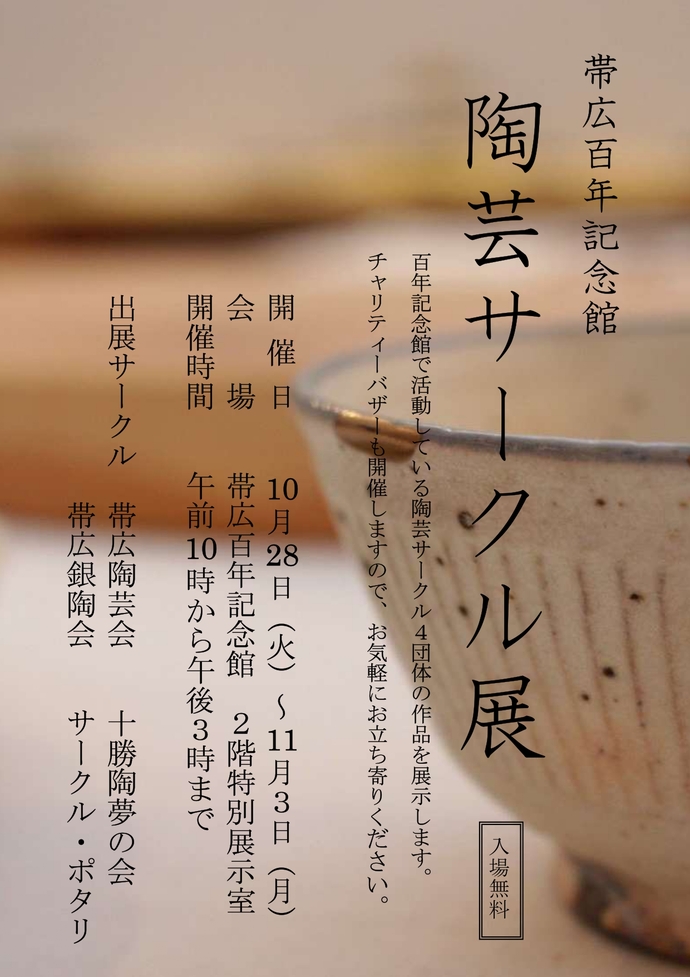 帯広百年記念館
陶芸サークル展
入場無料
百年記念館で活動している陶芸サークル4団体の作品を展示します。
チャリティーバザーも開催しますので、お気軽にお立ち寄りください。
開催日 10月28日（火）～11月3日（月）
会場 帯広百年記念館 2階特別展示室
開催時間 午前10時から午後3時まで
出展サークル 帯広陶芸会 十勝陶夢の会
帯広銀陶会 サークル・ポタリ